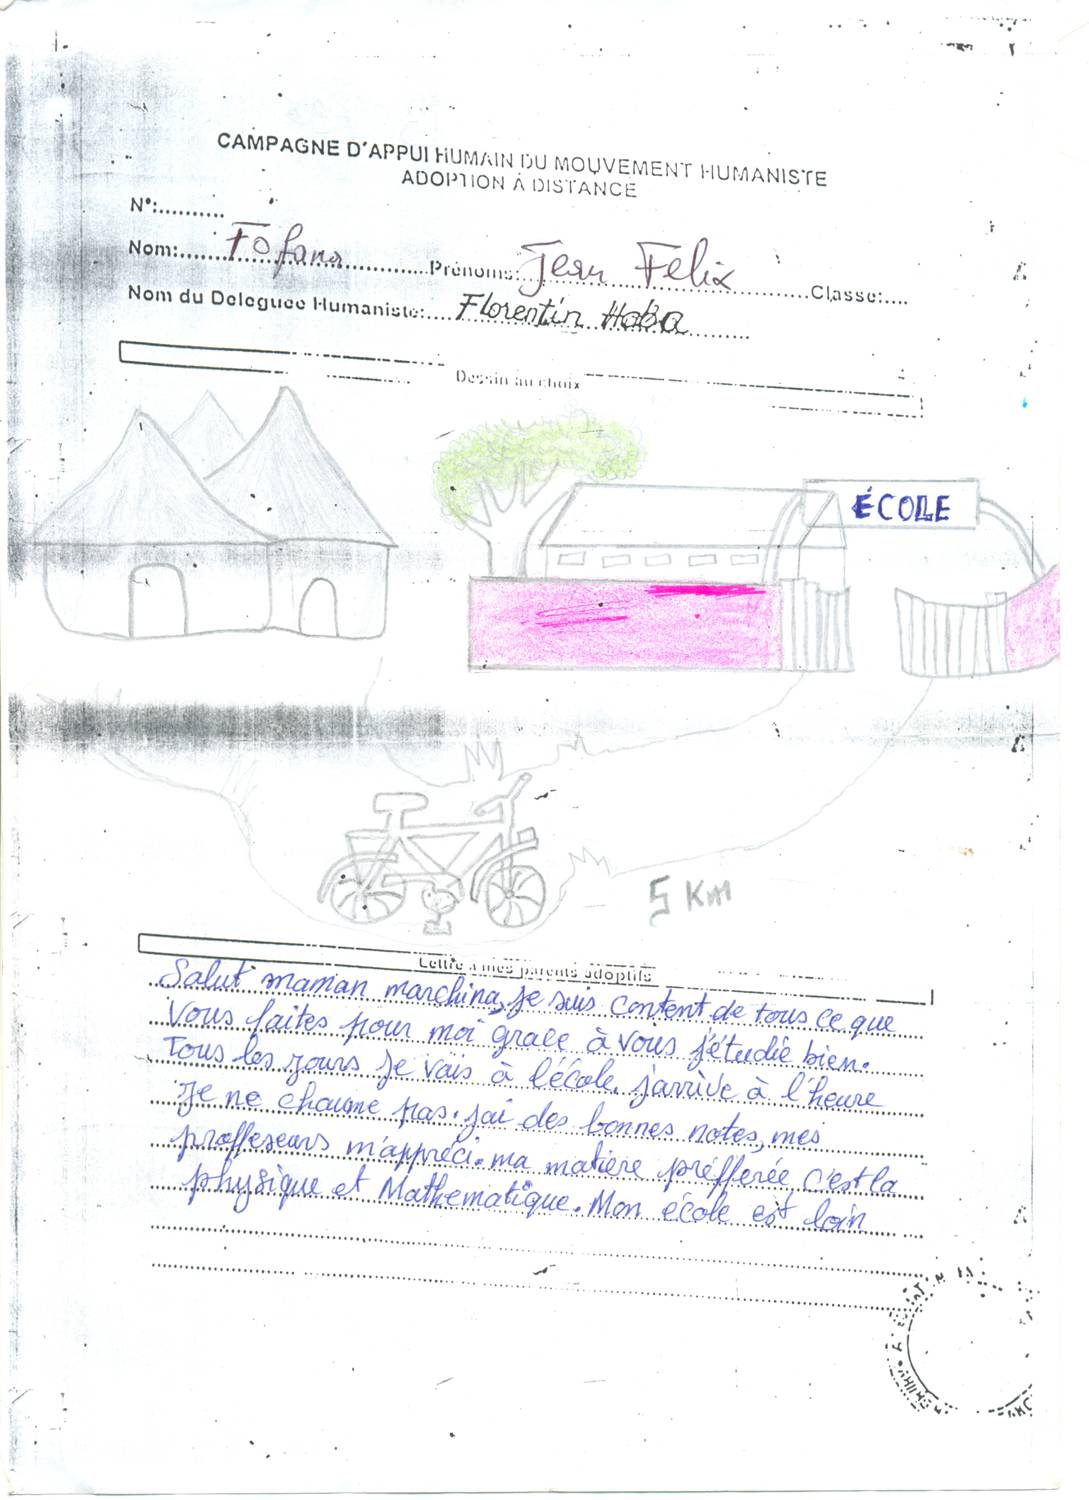 CAMPAGNE D'APPUI HUMAIN DU MOUVEMENT HUMANISTE
ADOPTION À DISTANCE
N°:..........
Nom: Fofana Prénoms: Jean Felix Classe:....
Nom du Deleguee Humaniste: Florentin Haba
Dessin au choix
ÉCOLE
5 Km
Lettre à mes parents adoptifs
Salut maman marchina, je suis content de tous ce que
Vous faites pour moi grace à vous j'étudie bien.
Tous les jours je vais à l'école. j'arrive à l'heure
Je ne chaume pas. j'ai des bonnes notes, mes
proffeseurs m'appréci. ma matière préfferée c'est la
physique et Mathematique. Mon école est loin